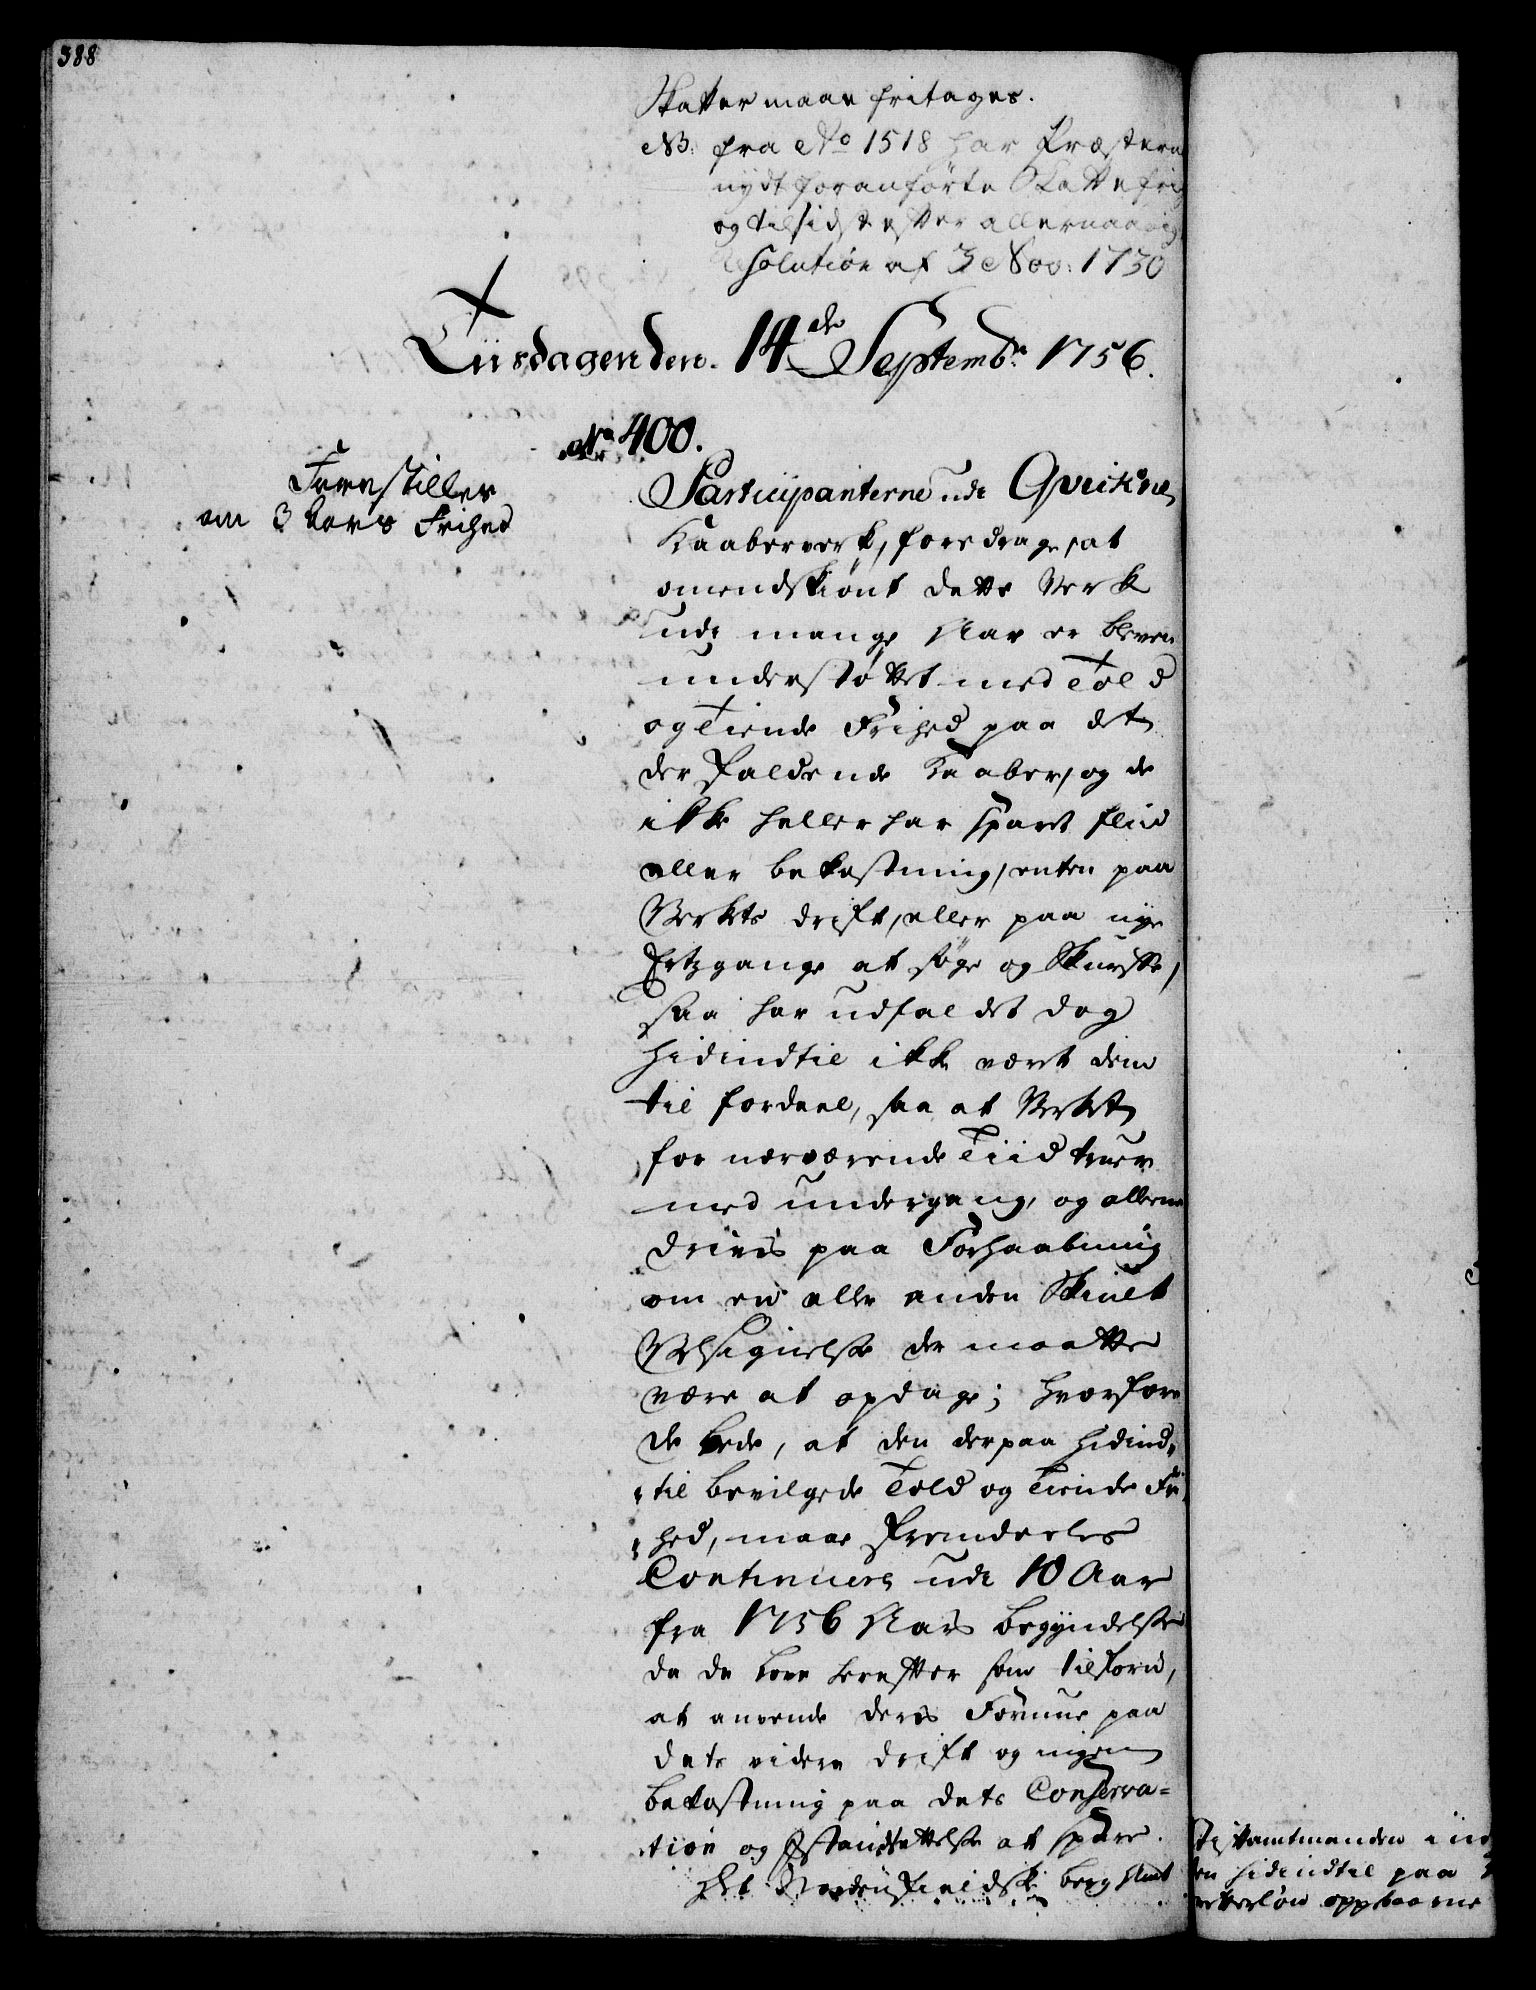 388
Skatter maae fritages.
NB: fra No 1518 har Præstern
nydt foranførte Skattefri
og tilsidst efter allernaadig
solution af 3 Nov: 1730
Tiisdagen den 14de Septembr 1756.
No 400.
Forestilles
om 3 Aars Frihed
Participanterne udi Qvikne
Kaaberverk, foredrage, at
omendskiønt dette Verk
udi mange Aar er bleven
understøttet med Told
og Tiende Frihed paa det
der faldende Kaaber, og de
ikke heller har sparet Fliid
eller bekostning, enten paa
Verkets drift, eller paa nye
Ertzgange at søge og Skurffe,
saa har udfaldet dog
hidindtil ikke været dem
til fordeel, saa at Verket
for nærværende Tiid truer
med undergang, og allene
drives paa Forhaabning
om en eller anden Skiult
Velsignelse der maatte
være at opdage; hvorfore
de bede, at den derpaa hidind-
til bevilgede Told og Tiende Fri
hed, maae fremdeeles
Continuere udi 10 Aar
fra 1756 Aars begyndelse
da de love herefter som tilforn,
at anvende deres Formue paa
dets videre drift og ingen
bekostning paa dets Conserva-
tion og Istandsættelse at spare.
Det Nordenfieldske Berg Amt
Stiftamtmanden i
en hidindtil paa
oppebaarne